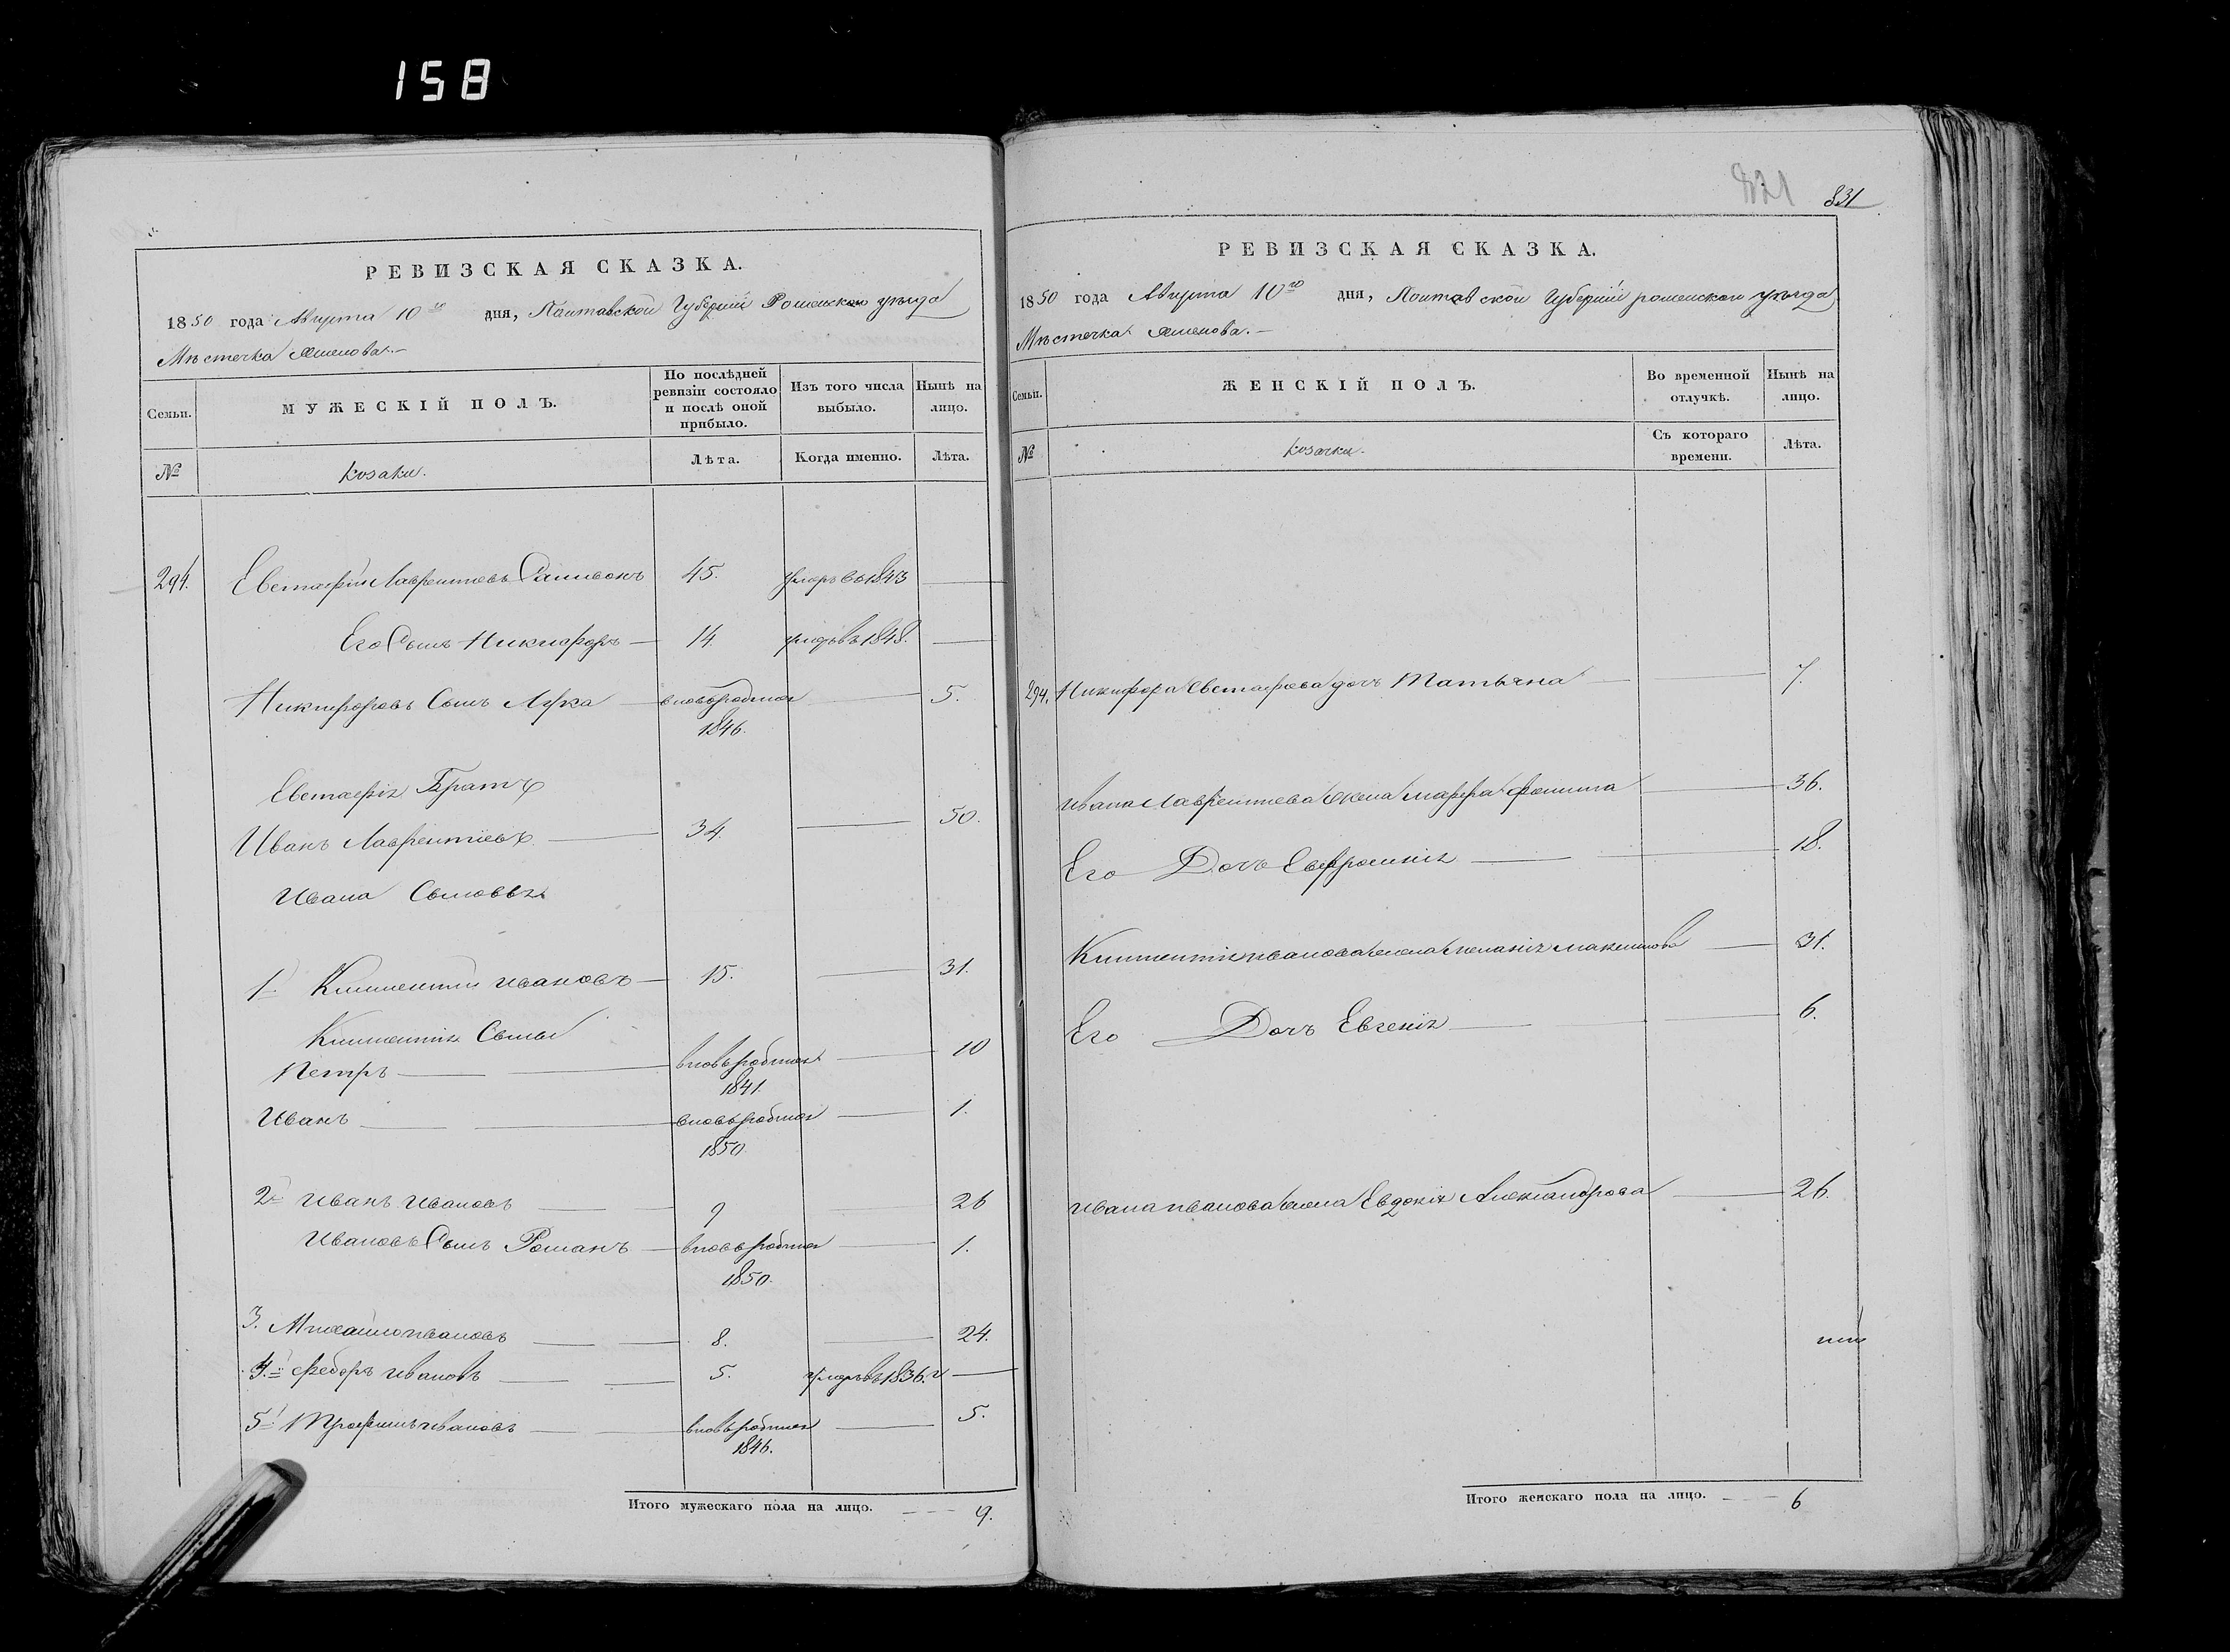 158
РЕВИЗСКАЯ СКАЗКА.
1850 года Августа 10го дня, Полтавской Губернии Роменскаго уѣзда
Мѣстечка
МУЖЕСКІЙ ПОЛЪ.
Семьи.
По послѣдней ревизіи состояло и послѣ оной прибыло.
Изъ того числа выбыло.
Нынѣ на лицо.
№
козаки.
Лѣта.
Когда именно.
Лѣта.
294. Евстафій Лаврентіевъ 45. умеръ въ 1843
Его Сынъ Никифоръ 14. умеръ въ 1848.
Никифоровъ Сынъ Лука вновьрожден 5.
1846.
Евстафія Братъ
Иванъ Лаврентіевъ 34. 50.
Ивана Сыновья
1й Климентій Ивановъ 15. 31.
Климентія Сыны
Петръ вновьрожден 10
1841.
Иванъ вновьрожден 1.
1850
2й Иванъ Ивановъ 9 26
Ивановъ Сынъ Романъ вновьрожден 1.
1850.
3. Михайло Ивановъ 8. 24.
4й Федоръ Ивановъ 5. умеръ въ 1836.г
5й Трофимъ Ивановъ вновьрожден 5.
1846.
Итого мужескаго пола на лицо. 9.
821 831
РЕВИЗСКАЯ СКАЗКА.
1850 года Августа 10го дня, Полтавской Губерніи роменскаго уѣзда
Мѣстечка
Семьи.
ЖЕНСКІЙ ПОЛЪ.
Во временной отлучкѣ.
Нынѣ на лицо.
№
козачки.
Съ котораго времени.
Лѣта.
294. Никифора Евстафіева дочь Татьяна 7.
Ивана Лаврентіева жена Марфа Фомина 36.
Его Дочь Евфросинія 18.
Климентія Иванова жена Меланія Максимова 31.
Его Дочь Евгенія 6.
Ивана Иванова жена Евдокія Александрова 26.
Итого женскаго пола на лицо. 6